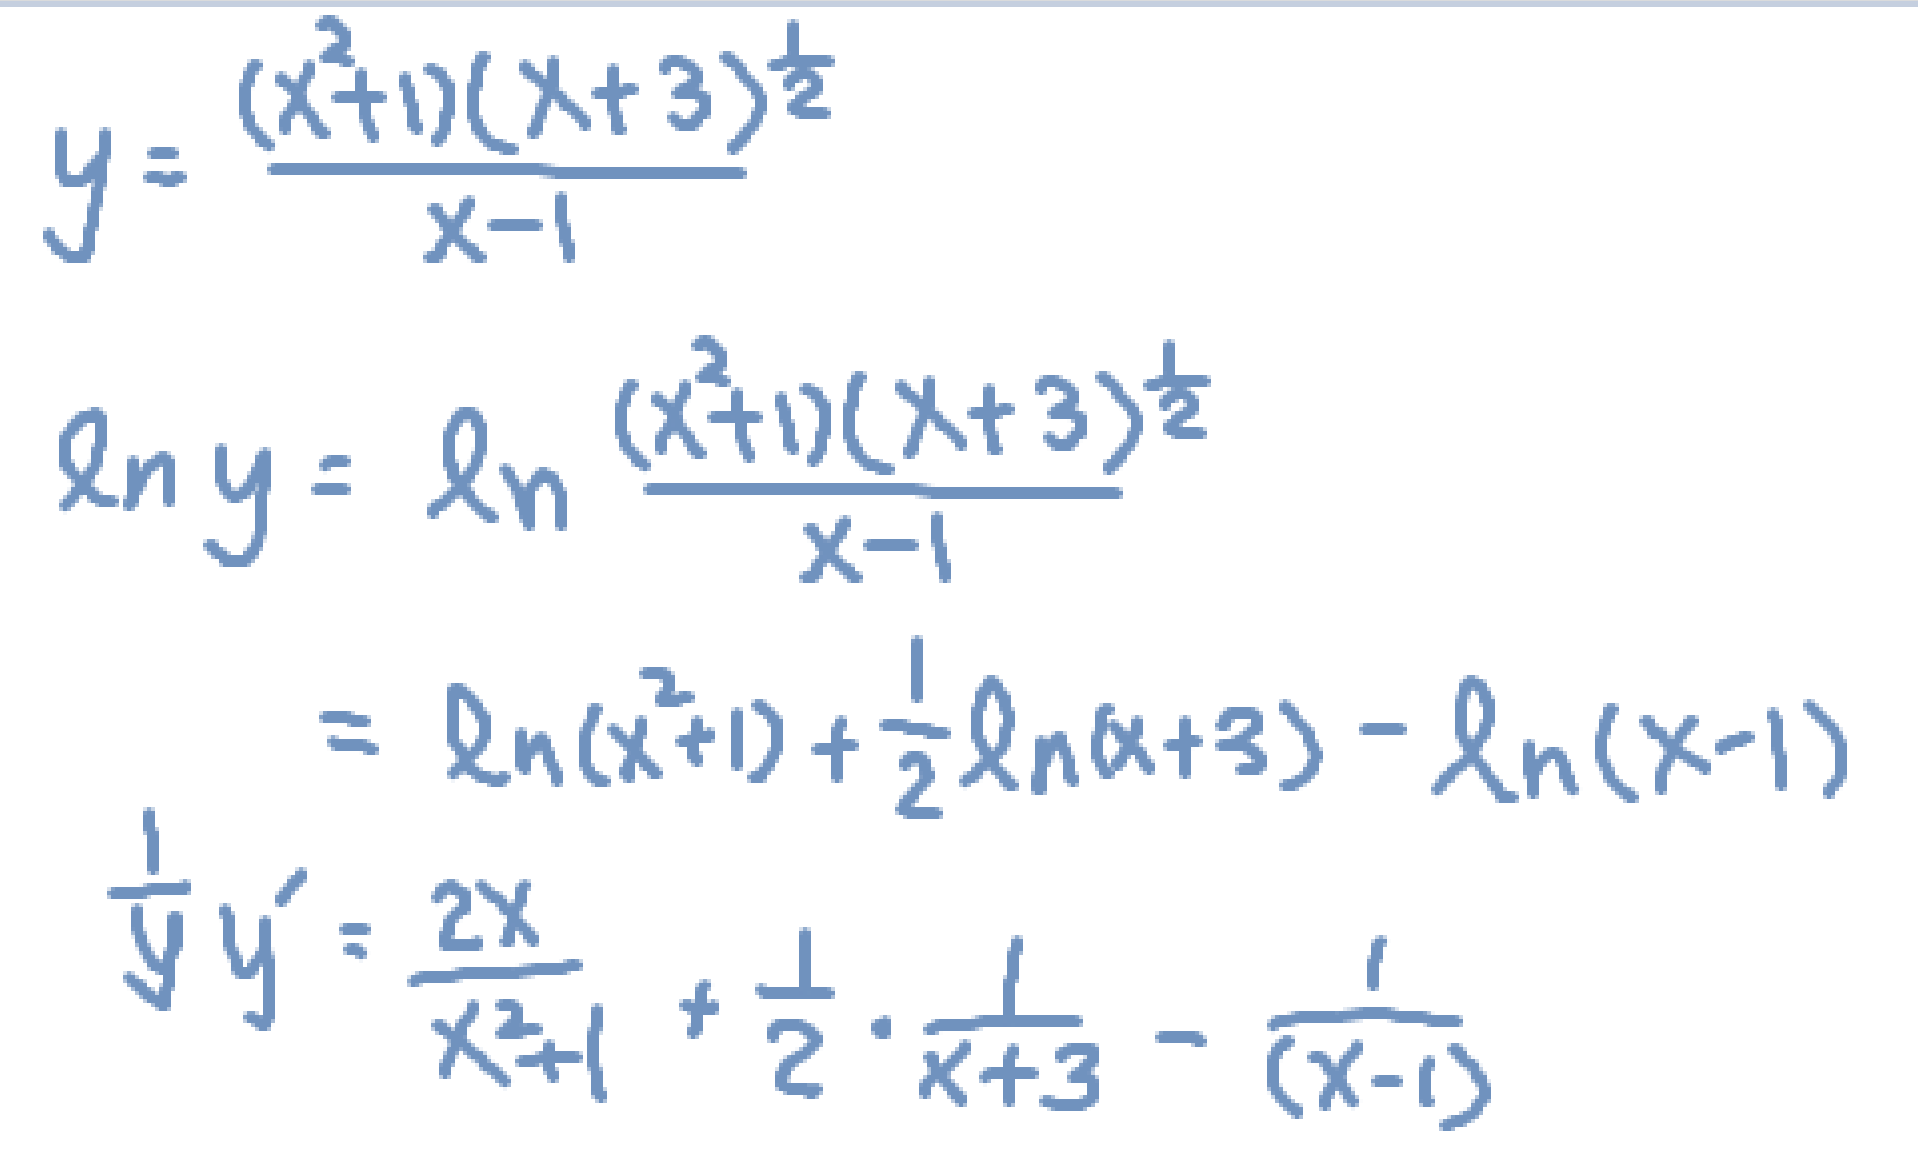 y = (x²+1)(x+3)^(1/2) / (x-1)
ln y = ln (x²+1)(x+3)^(1/2) / (x-1)
= ln(x²+1) + 1/2 ln(x+3) - ln(x-1)
1/y y' = 2x/(x²+1) + 1/2 · 1/(x+3) - 1/(x-1)